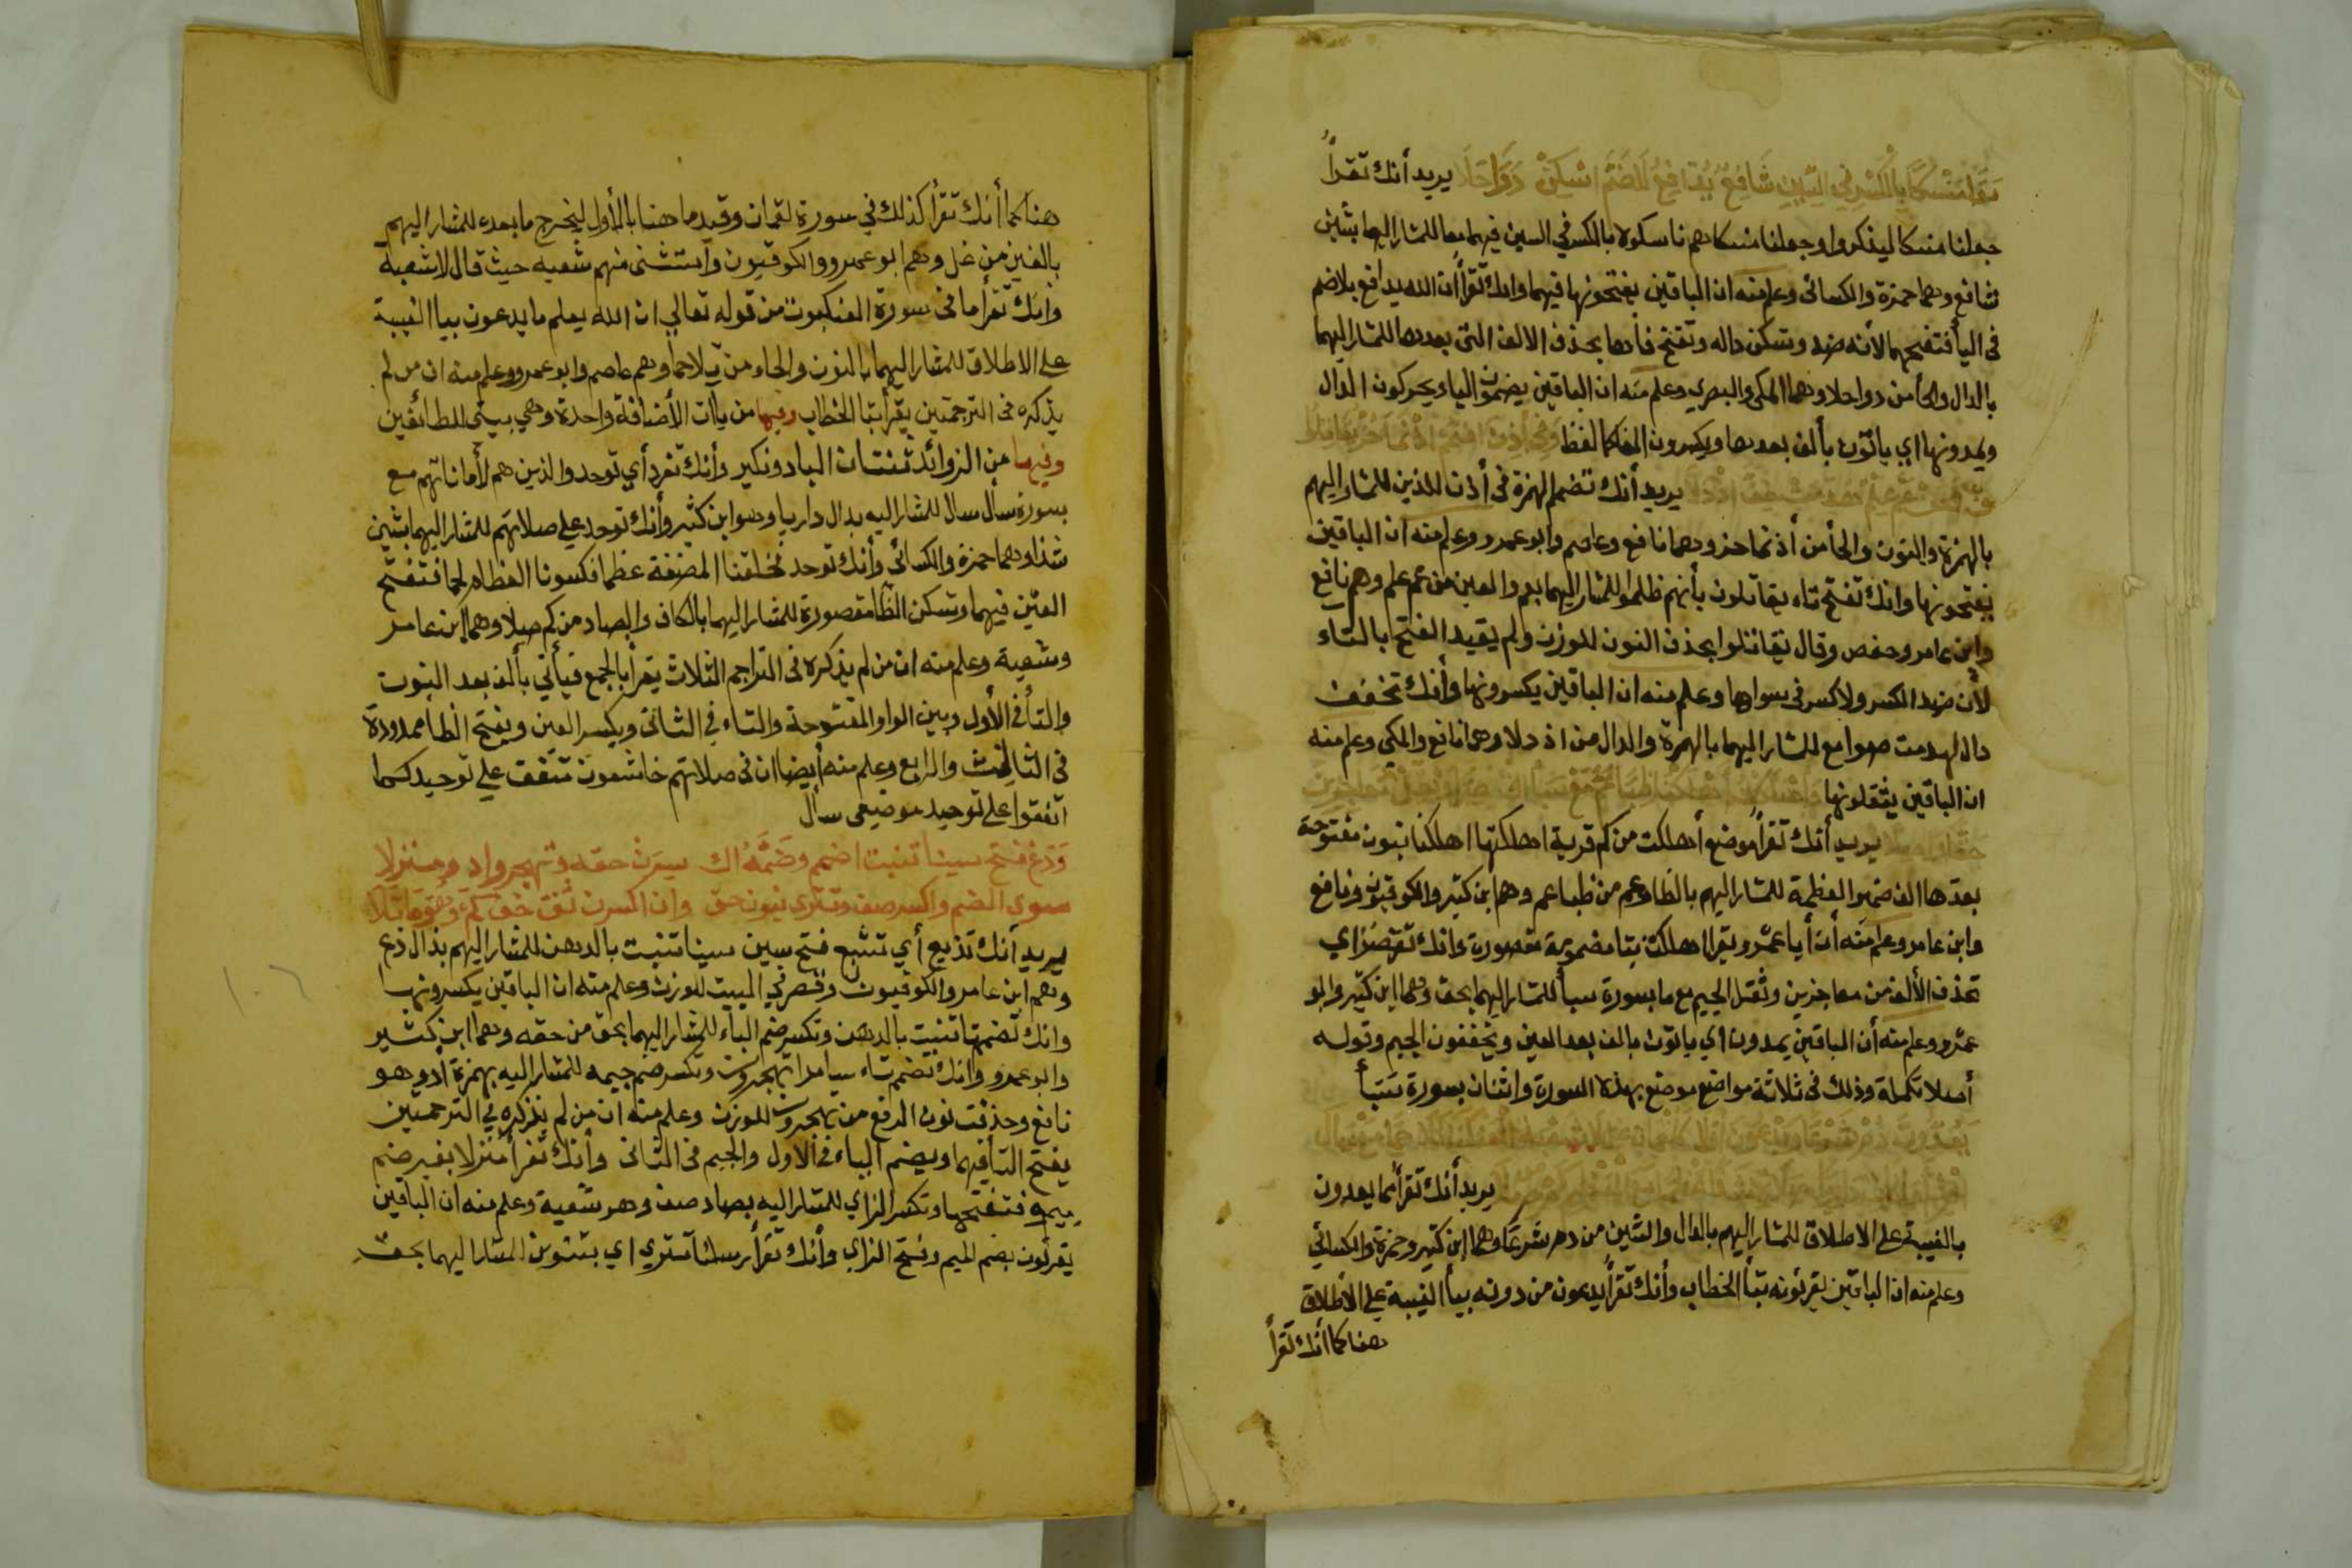 منسكا بالكسر في السين شافع يدافع للضم اسكن دواحلا يريد أنك تقرأ
جعلنا منسكا ليذكروا وجعلنا منسكا هم ناسكوه بالكسر في السين فيهما معا للمشار اليهما بشين
شافع وهما حمزة والكسائى وعلم منه ان الباقين يفتحونها فيهما وانك تقرأ ان الله يدافع بلا ضم
فى اليا فتفتحها لأنه ضد وتسكن داله وتفتح فأدها بحذف الالف التى بعدها للمشار اليهما
بالدال والحأ من دواحلا وهما المكى والبصري وعلم منه ان الباقين يضمون الياء ويحركون الدال
ويمدونها اي ياتون بألف بعدها ويكسرون الفا كما لفظ وفى أذن اضمم
يريد أنك تضم الهمزة فى أذن للذين للمشار اليهم
بالهمزة والنون والحأ من أذ نما حز وهما نافع وعاصم وابو عمرو وعلم منه ان الباقين
يفتحونها وانك تفتح تاء يقاتلون بأنهم ظلموا للمشار اليهما بعم والعين من عم علم وهم نافع
وابن عامر وحفص وقال يقاتلوا بحذف النون للوزن ولم يقيد الفتح بالتاء
لأن ضد الكسر ولا كسر فى سواها وعلم منه ان الباقين يكسرونها وأنك تخفف
دال لهدمت صوامع للمشار اليهما بالهمزة والدال من اذ دلا وهما نافع والمكي وعلم منه
ان الباقين يثقلونها
يريد أنك تقرأ موضع أهلكت من كم قرية اهلكتها اهلكنا بنون مفتوحة
بعدها الف ضمير العظمة للمشار اليهم بالظا وعم من ظبا عم وهم بن كثير والكوفيون ونافع
وابن عامر وعلم منه أن أبا عمرو يقرا اهلكت بتا مضمومة مقصورة وانك تقصر اي
تحذف الألف من معاجزين وتثقل الجيم مع ما بسورة سبأ للمشار اليهما بحق وهما ابن كثير وابو
عمرو وعلم منه أن الباقين يمدون اي ياتون بالف بعد العين ويخففون الجيم وقوله
أصلا تكملة وذلك فى ثلاثة مواضع موضع بهذه السورة واثنان بسورة سبأ
يريد أنك تقرأ مما يعدون
بالغيبة على الاطلاق للمشار اليهم بالدال والشين من دهر شرعا وهما ابن كثير وحمزة والكسائي
وعلم منه ان الباقين يقرئونه بتأ الخطاب وأنك تقرأ يدعون من دونه بيأ الغيبة على الاطلاق
هنا كما أنك تقرأ
هنا كما أنك تقرأ كذلك في سورة لقمان وقيد ما هنا بالأول ليخرج ما بعده للمشار اليهم
بالغين من غل وهم ابو عمرو والكوفيون وأستثنى منهم شعبه حيث قال لا شعبه
وانك تقرأ ما فى سورة العنكبوت من قوله تعالي ان الله يعلم ما يدعون بيا الغيبة
على الاطلاق للمشار اليهما بالنون والحاء من نلا حما وهم عاصم وابو عمرو وعلم منه ان من لم
يذكره فى الترجمتين يقرأ بتا الخطاب وفيها من ياأت الأضافة واحدة وهي بيتى للطائفين
وفيها من الزوائد ثنتان الباد ونكير وأنك تفرد أي توحد والذين هم لأماناتهم مع
بسورة سأل سال للمشار اليه بدال داريا وهو ابن كثير وأنك توحد علي صلاتهم للمشار اليهما بشين
شذا وهما حمزة والكسائى وأنك توحد فخلقنا المضغة عظما فكسونا العظام لحما فتفتح
العين فيهما وتسكن الظا مقصورة للمشار اليهما بالكاف والصاد من كم صلا وهما ابن عامر
وشعبة وعلم منه ان من لم يذكره فى التراجم الثلاث يقرأ بالجمع فيأتي بألف بعد النون
والتأ في الأول وبين الواو المفتوحة والتاء في الثاني ويكسر العين ويفتح الظا ممدودة
فى الثالث والرابع وعلم منه أيضا ان فى صلاتهم خاشعون متفق علي توحيد كما
اتفقوا على توحيد موضعى سأل
وذع فتح سينا تنبت اضمم وضمه اك سرن حقه وتهجروا د ومنزلا
سوى الضم واكسر صف وتترى نبون حق وان اكسرن ثق خف كم وهو ما تلا
يريد أنك تذيع أي تشبع فتح سين سينا تنبت بالدهن للمشار اليهم بذال ذع
وهم ابن عامر والكوفيون وقصر في البيت للوزن وعلم منه ان الباقين يكسرونها
وانك تضم تا تنبت بالدهن وتكسر ضم الباء للمشار اليهما بحق من حقه وهما ابن كثير
وابو عمرو وانك تضم تاء سامرا تهجرون وتكسر ضم جيمه للمشار اليه بهمزة أد وهو
نافع وحذفت نون الرفع من تهجرون للوزن وعلم منه ان من لم يذكره في الترجمتين
يفتح التأ فيهما ويضم الباء فى الاول والجيم فى الثانى وأنك تقرأ منزلا بغير ضم
ميم فتفتحها وتكسر الزاي للمشار اليه بصاد صف وهو شعبة وعلم منه ان الباقين
يقرئون بضم الميم وفتح الزاي وأنك تقرأ رسلنا تترى اي بتنوين للمشار اليهما بحق
١٠٦